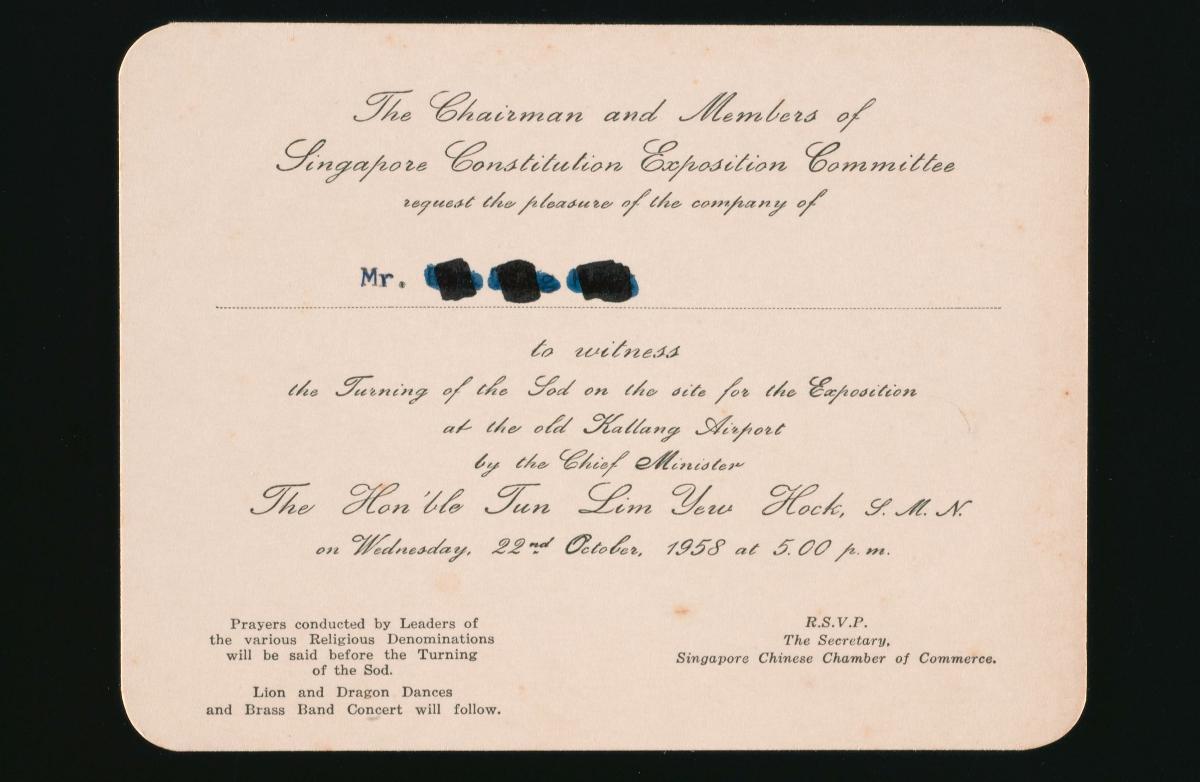 The Chairman and Members of
Singapore Constitution Exposition Committee
request the pleasure of the company of
Mr.
to witness
the Turning of the Sod on the site for the Exposition
at the old Kallang Airport
by the Chief Minister
The Hon'ble Tun Lim Yew Hock, S. M. N.
on Wednesday, 22nd October, 1958 at 5.00 p.m.
Prayers conducted by Leaders of
the various Religious Denominations
will be said before the Turning
of the Sod.
Lion and Dragon Dances
and Brass Band Concert will follow.
R.S.V.P.
The Secretary,
Singapore Chinese Chamber of Commerce.